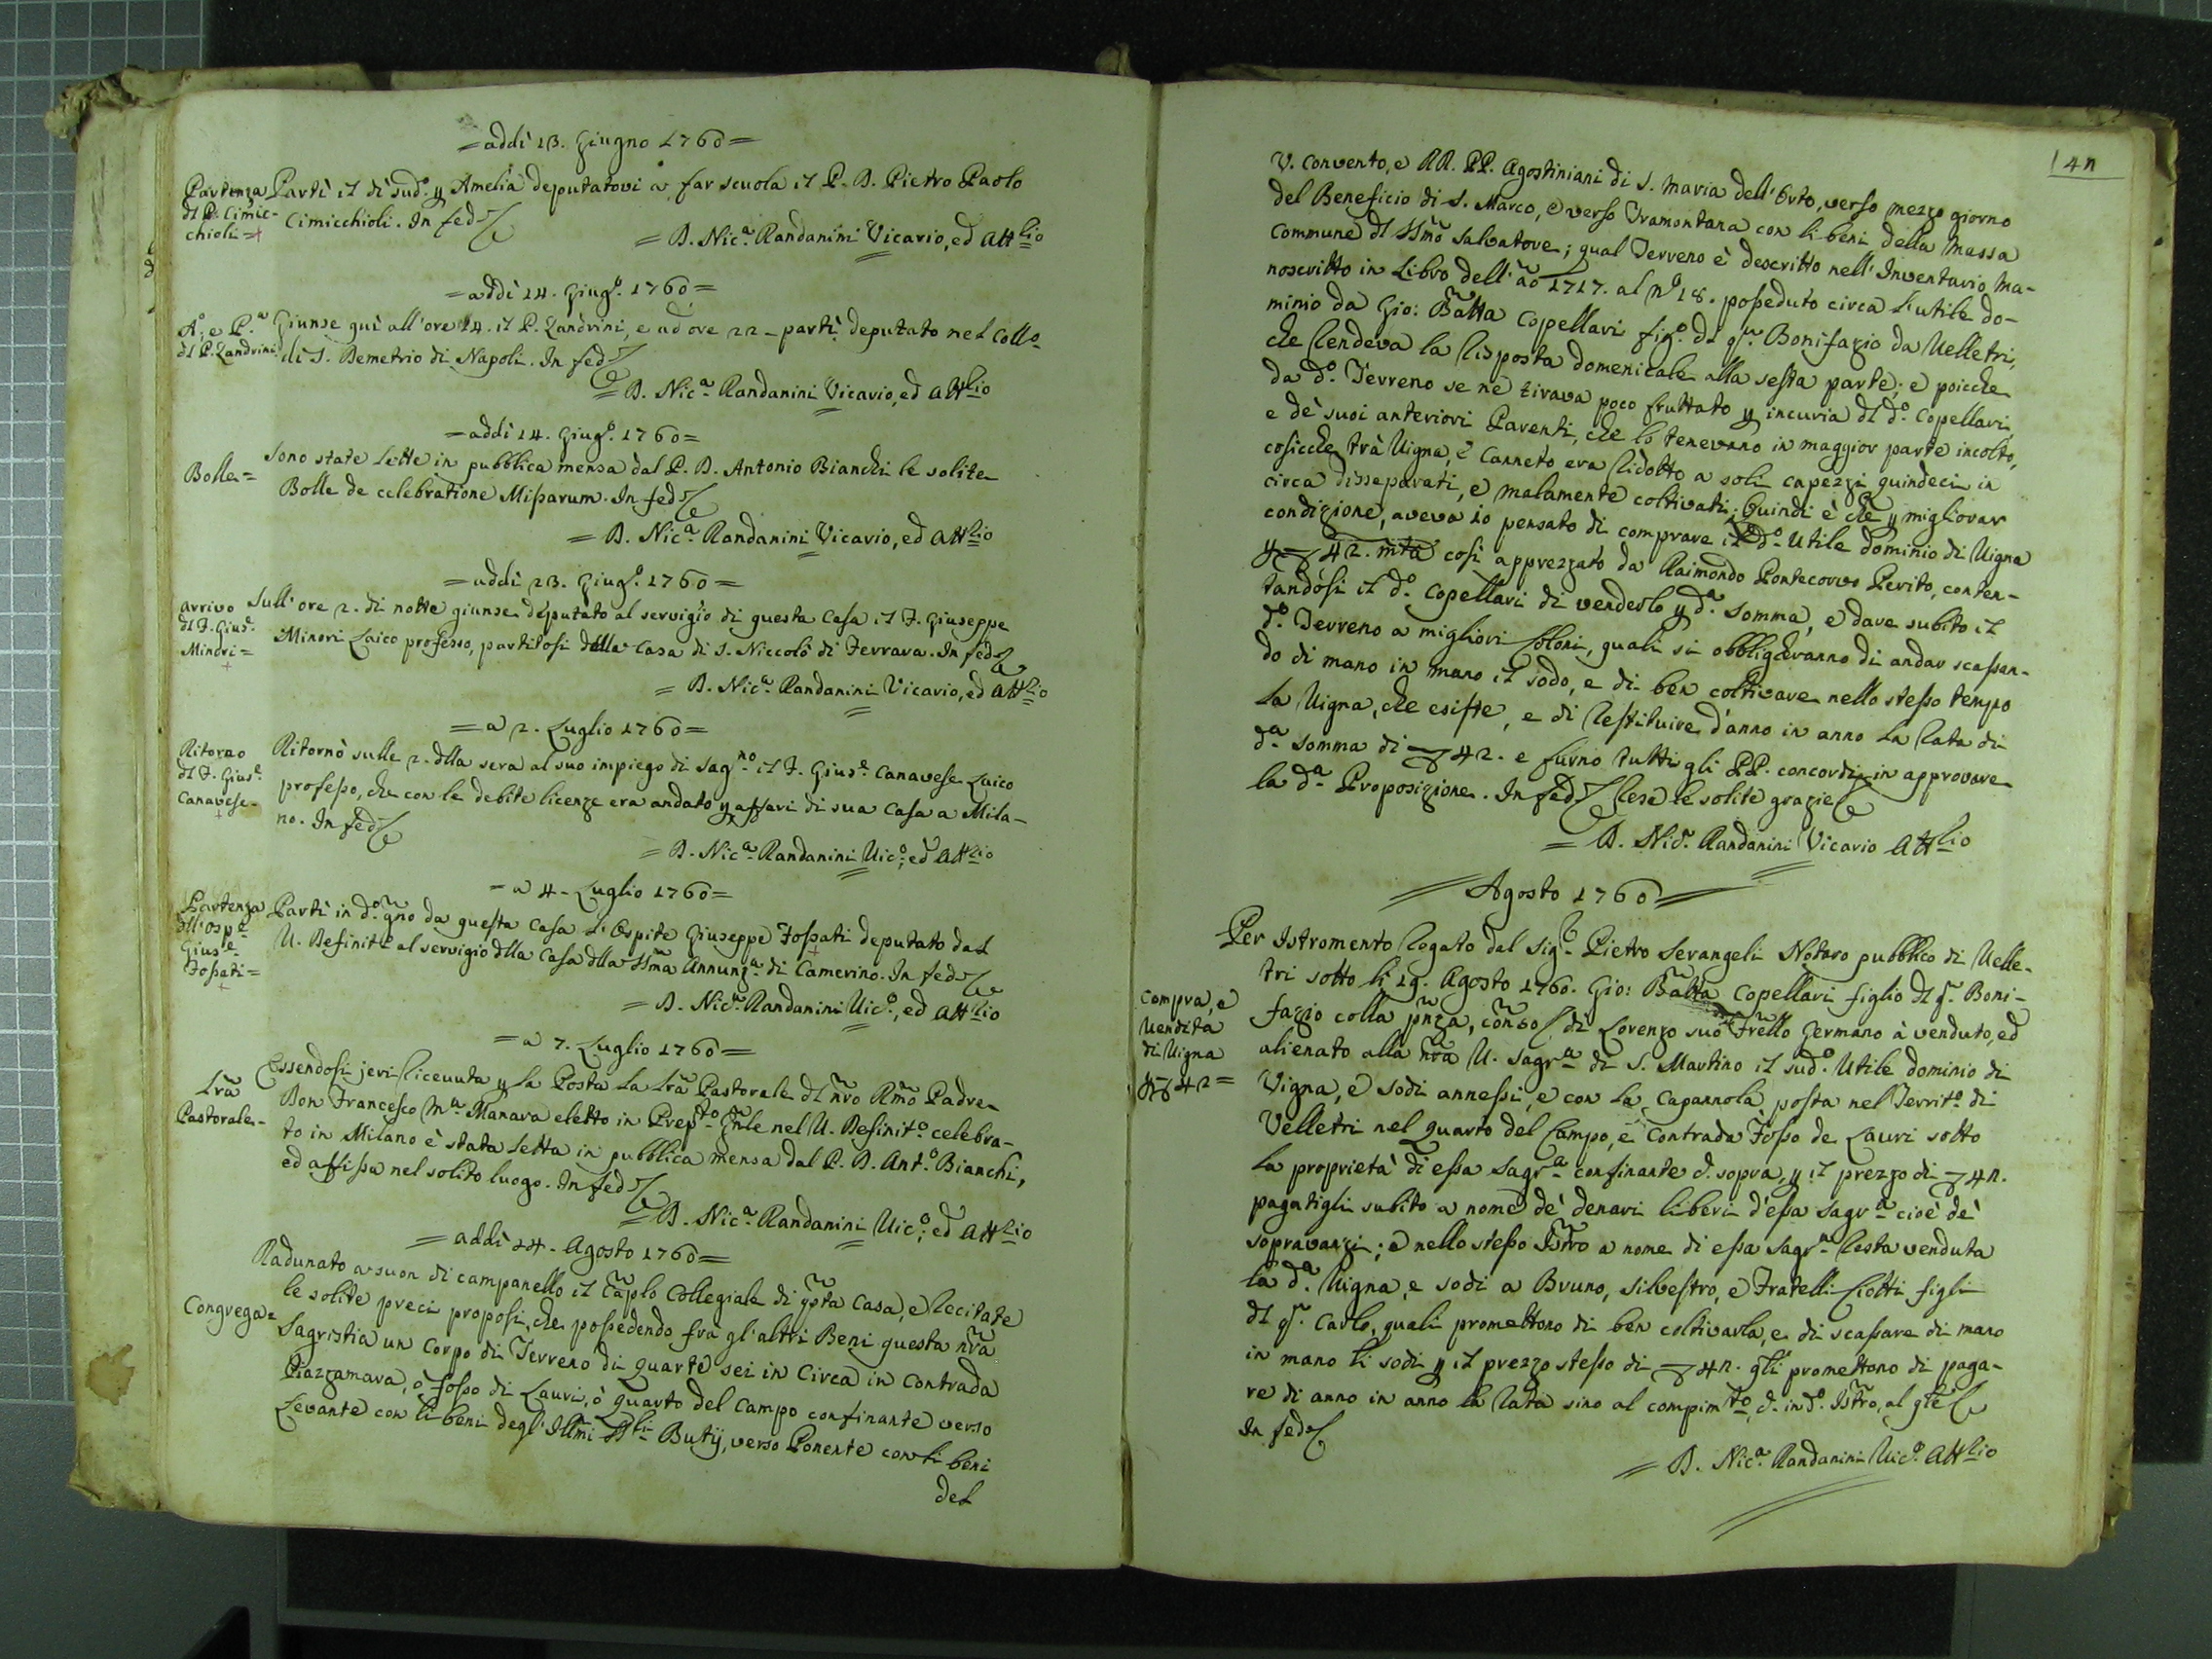 = addì 13. Giugno 1760 =
Partenza
dl P. Cimic-
chioli =
Partì il dì sud.º p Amelia deputatovi a far scuola il P. D. Pietro Paolo
Cimicchioli. In fede
= D. Nic.ª Randanini Vicario, ed Att.rio
= addì 14. Giug.º 1760 =
A.º e P.ª
dl P. Landrini
Giunse quì all'ore 14. il P. Landrini, e ad ore 22 - partì deputato nel Coll.o
di S. Demetrio di Napoli. In fede
= D. Nic.ª Randanini Vicario, ed Att.rio
= addì 14. Giug.º 1760 =
Bolle =
Sono state lette in pubblica mensa dal P. D. Antonio Bianchi le solite
Bolle de celebratione Missarum. In fede
= D. Nic.ª Randanini Vicario, ed Att.rio
= addì 23. Giug.º 1760 =
Arrivo
dl F. Gius.e
Minori =
Sull'ore 2. di notte giunse deputato al servigio di questa Casa il F. Giuseppe
Minori Laico professo, partitosi dalla Casa di S. Niccolò di Ferrara. In fede
= D. Nic.ª Randanini Vicario, ed Att.rio
= a 2. Luglio 1760 =
Ritorno
dl F. Gius.e
Canavese -
Ritornò sulle 2. dlla sera al suo impiego di Sag.no il F. Gius.e Canavese Laico
professo, che con le debite licenze era andato p affari di sua Casa a Mila-
no. In fede
= D. Nic.ª Randanini Vic.º, ed Att.rio
= a 4 - Luglio 1760 =
Partenza
dll'Osp.e
Gius.e
Fossati =
Partì in d.º gno da questa Casa l'Ospite Giuseppe Fossati deputato dal
V. Definit.º al servigio dlla Casa dlla SSma Annunz.ª di Camerino. In fede
= D. Nic.ª Randanini Vic.º, ed Att.rio
= a 7. Luglio 1760 =
Lrã
Pastorale -
Essendosi jeri ricevuta p la Posta la Lrã Pastorale dl nro Rmo Padre
Don Francesco M.ª Manara eletto in Prep.to Gnle nel V. Definit.º celebra-
to in Milano è stata letta in pubblica mensa dal P. D. Ant.º Bianchi,
ed affissa nel solito luogo. In fede
= D. Nic.ª Randanini Vic.º, ed Att.rio
= addì 14 - Agosto 1760 =
Congrega =
Radunato a suon di campanello il Caplo Collegiale di qsta Casa, e recitate
le solite preci proposi, che possedendo frà gl'altri Beni questa nrã
Sagristia un Corpo di Terreno di quarte sei in Circa in Contrada
Piazzamara, o fosso di Lauri, ò Quarto del Campo confinante verso
Levante con li beni degl'Illmi SS.ri Butij, verso Ponente con li beni
del
147
V. Convento, e RR. PP. Agostiniani di S. Maria dell'Orto, verso mezzo giorno
del Beneficio di S. Marco, e verso Tramontana con li beni della Massa
Commune dl SSmo Salvatore; qual Terreno è descritto nell'Inventario Ma-
noscritto in Libro dell'año 1717. al nº 18. posseduto circa l'utile do-
minio da Gio: Batta Copellari fig.º dl q.m Bonifazio da Velletri,
che rendeva la risposta domenicale alla sesta parte; e poicche
da d.º Terreno se ne tirava poco fruttato p incuria dl d.º Copellari
e de' suoi anteriori Parenti, che lo tenevano in maggior parte incolto,
cosicche trà Vigna, e Canneto era ridotto a soli capezzi quindeci in
circa disseparati, e malamente coltivati; Quindi è che p migliorar
condizione, aveva io pensato di comprare il d.º Utile dominio di Vigna
p 42. mta così apprezzato da Raimondo Pontecorvo Perito, conten-
tandosi il d.º Copellari di venderlo p d.ª somma, e dare subito il
d.º Terreno a migliori Coloni, quali si obbligheranno di andar scassan-
do di mano in mano il sodo, e di ben coltivare nello stesso tempo
la Vigna, che esiste, e di restituire d'anno in anno la rata di
d.ª somma di 42. e furno tutti gli PP. concordi in approvare
la d.ª Proposizione. In fede rese le solite grazie
= D. Nic.ª Randanini Vicario Att.rio
Agosto 1760
Compra, e
Vendita
di Vigna
p 42 =
Per Istromento rogato dal Sig.r Pietro Serangeli Notaro pubblico di Velle-
tri sotto li 19. Agosto 1760. Gio: Batta Copellari figlio dl q. Boni-
fazio colla pñza, coñso di Lorenzo suo Frello Germano à venduto, ed
alienato alla nrã V. Sagr.ª di S. Martino il sud.º Utile dominio di
Vigna, e sodi annessi, e con la Capannola posta nel Territ.º di
Velletri nel Quarto del Campo, e Contrada Fosso de Lauri sotto
la proprietà di essa Sagr.ª confinante d. sopra, p il prezzo di 42.
pagatigli subito a nome de' denari liberi d'essa Sagr.ª cioè de'
sopravanzi; e nello stesso Istro a nome di essa Sagr.ª resta venduta
la d.ª Vigna, e sodi a Bruno, Silvestro, e Fratelli Ciotti figli
dl q. Carlo, quali promettono di ben coltivarla, e di scassare di mano
in mano li sodi p il prezzo stesso di 42. qli promettono di paga-
re di anno in anno la rata sino al compim.to, d. in d.º Istro, al qle
In fede
= D. Nic.ª Randanini Vic.º Att.rio